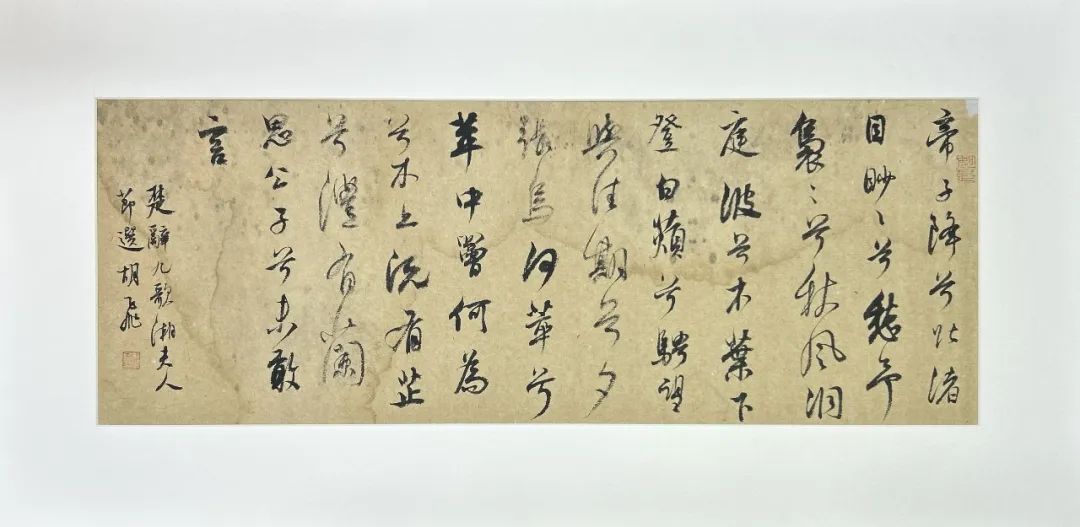 帝子降兮北渚
目眇〻兮愁予
裊〻兮秋風洞
庭波兮木葉下
登白薠兮騁望
與佳期兮夕
張鳥何萃兮
苹中罾何為
兮木上沅有芷
兮澧有蘭
思公子兮未敢
言
楚辭九歌湘夫人
節選胡飛